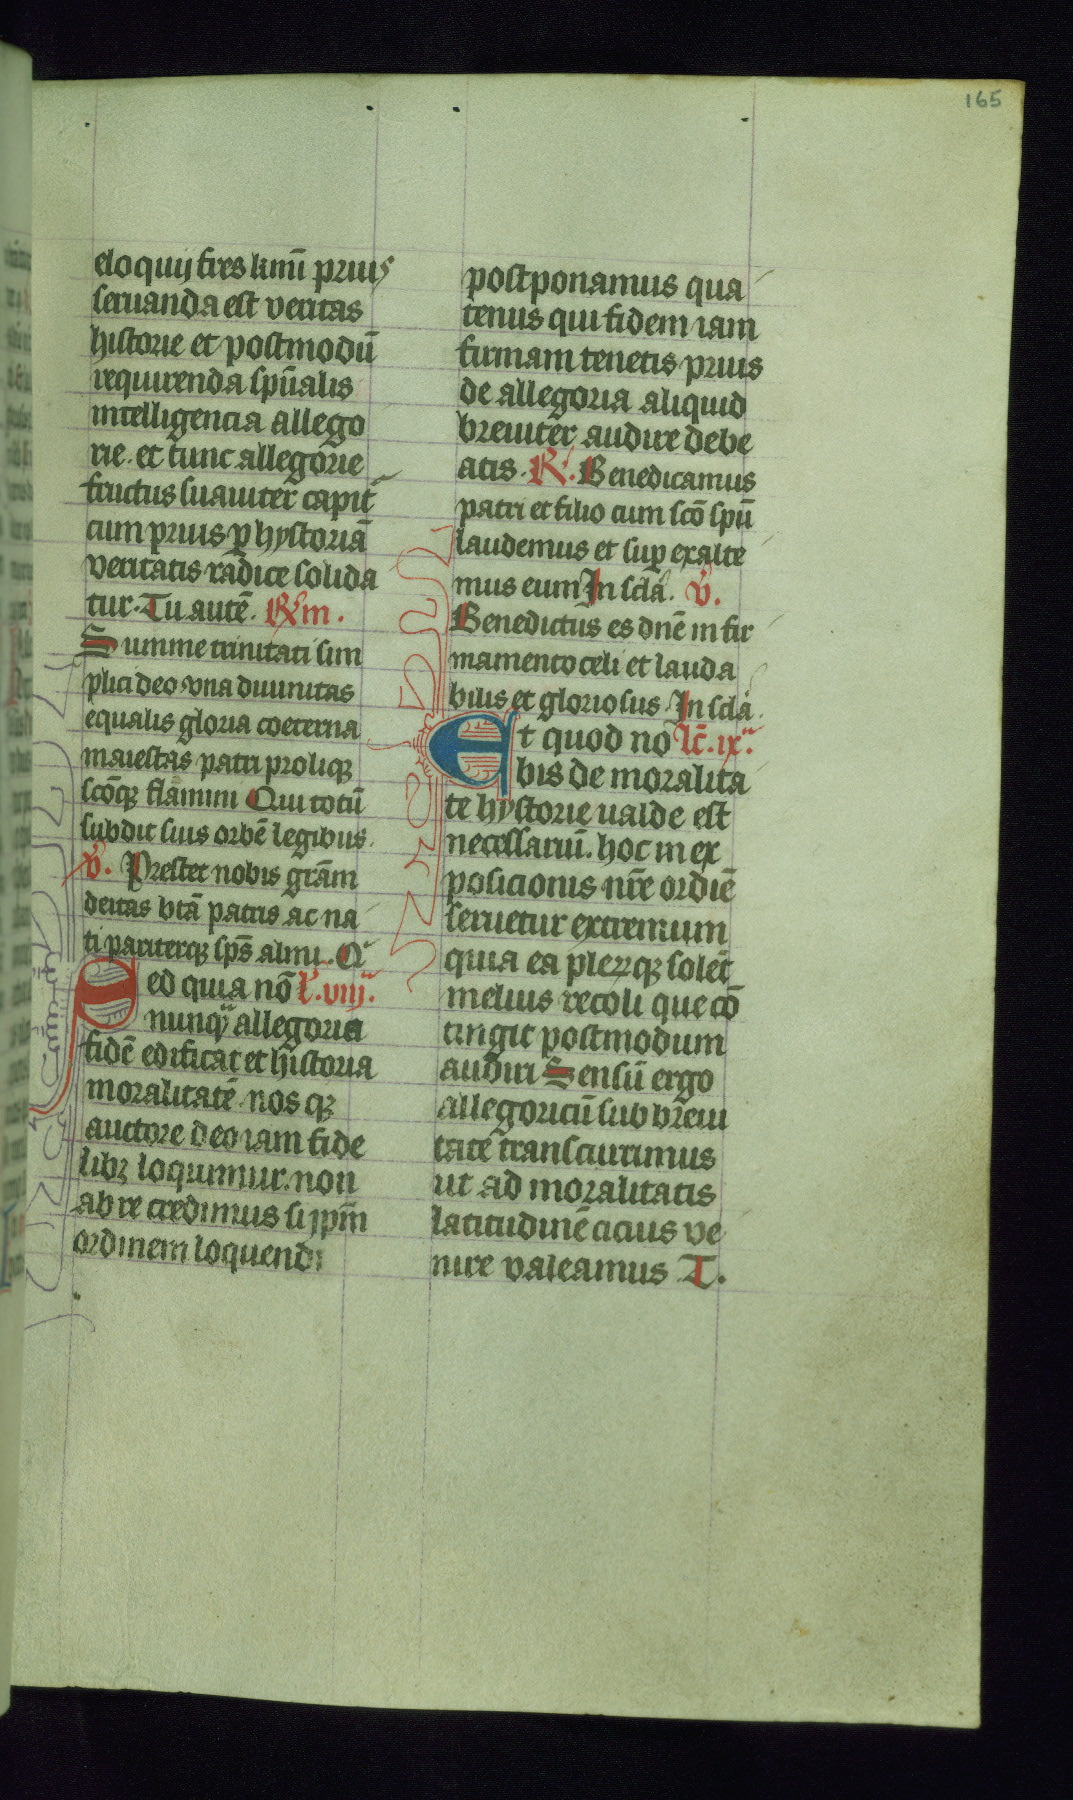 165
eloquij frēs kmī prius
seruanda est veritas
historie et postmodū
requirenda spūalis
intelligencia allego
rie. et tunc allegorie
fructus suauiter capit̄
cum prius ꝑ hystoriā
veritatis radice solida
tur. Tu autē. R̃m.
Summe trinitati sim
plici deo vna diuinitas
equalis gloria coeterna
maiestas patri proliqꝫ
scōqꝫ flamini Qui totū
subdit suis orbē legibus.
v̾. Prestet nobis grām
deitas btā patris ac na
ti pariterqꝫ sp̄s almi. Q
Sed quia nō l̾. viijᵃ.
nunqᵃ allegoria
fidē edificat et historia
moralitatē nos qꝫ
auctore deo iam fide
libꝫ loquimur. non
ab re credimus si ip̄m
ordinem loquendi
postponamus qua
tenus qui fidem iam
firmam tenetis prius
de allegoria aliquid
breuiter audire debe
atis. R̾. Benedicamus
patri et filio cum scō spū
laudemus et suꝑ exalte
mus eum In sclā. v̾.
Benedictus es dnē in fir
mamento celi et lauda
bilis et gloriosus. In sclā.
Et quod no lc̄. ixᵃ.
bis de moralita
te hystorie ualde est
necessariū. hoc in ex
posicionis nr̄e ordiē
seruetur extremum
quia ea pleꝝqꝫ solēt
melius recoli que cō
tingit postmodum
audiri Sensū ergo
allegoricū sub breui
tatē transcurrimus
ut ad moralitatis
latitudinē cicius ve
nire valeamus T.